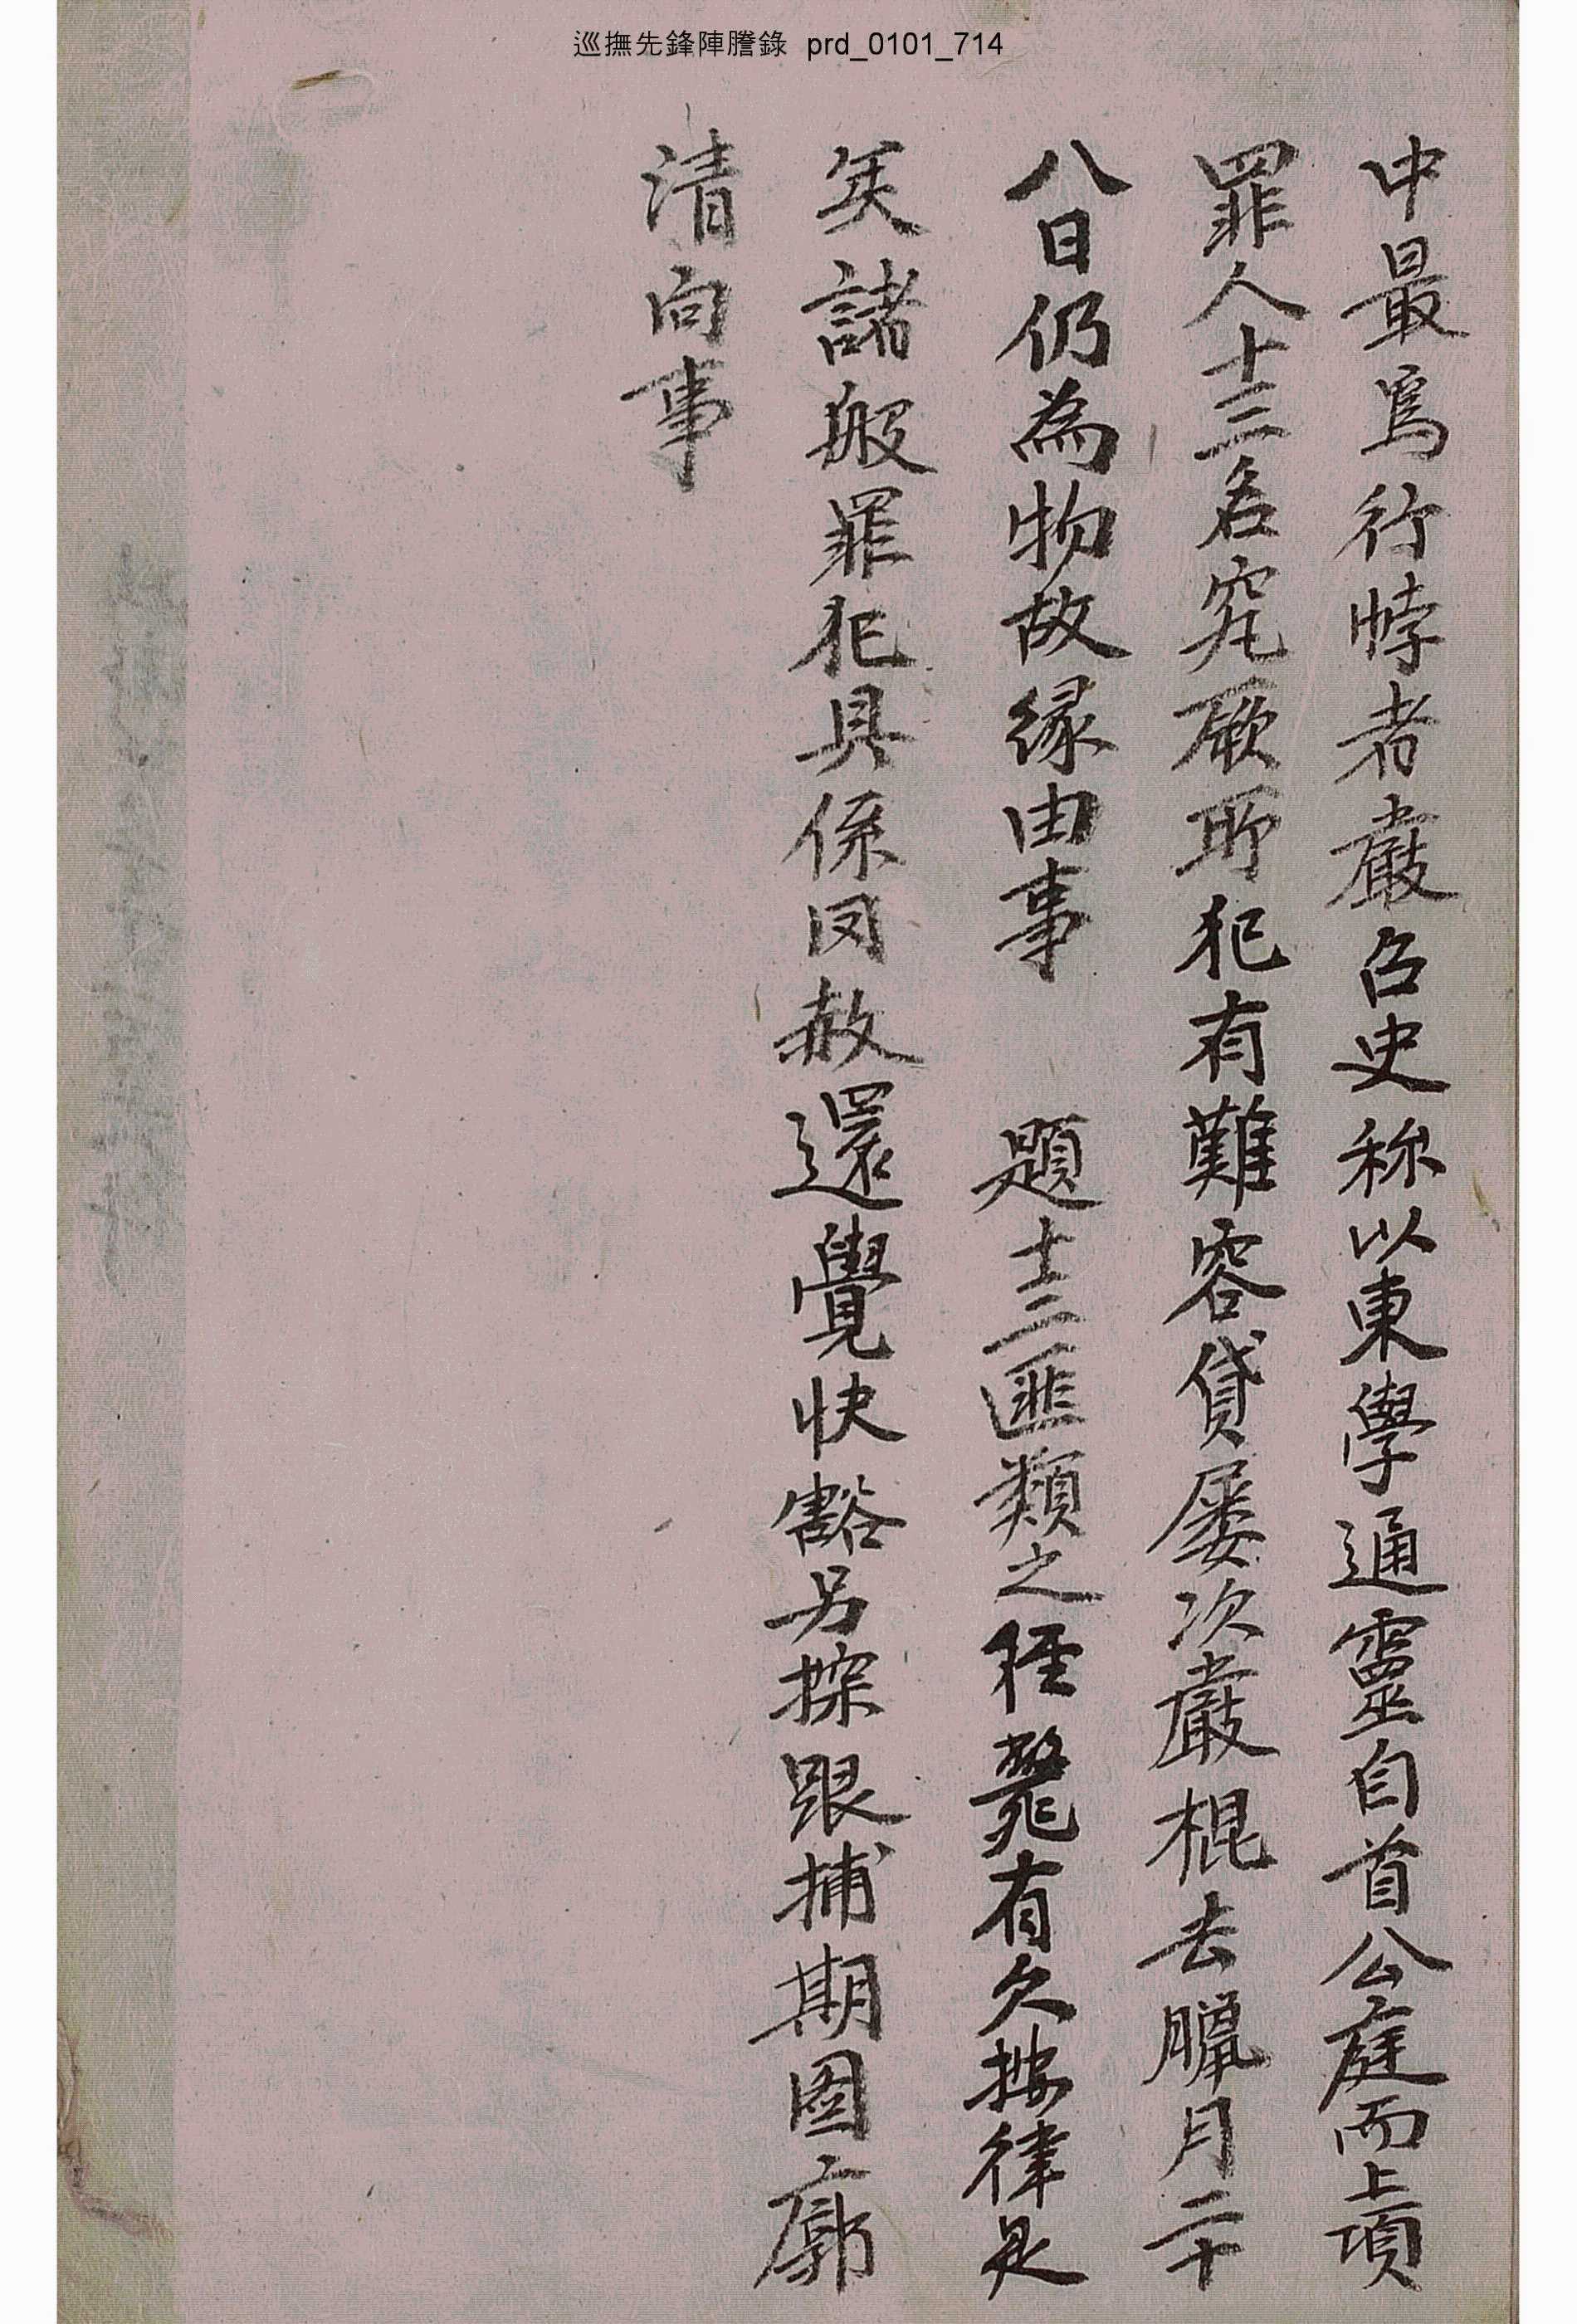 巡撫先鋒陣謄錄 prd_0101_714
中最爲行悖者嚴召史称以東學通靈自首公庭而上項
罪人十三名究厥所犯有難容貸屡次嚴棍去臘月二十
八日仍為物故縁由事 題十三匪類之徑斃有欠按律是
矣諸般罪犯具係罔赦還覺快豁另探跟捕期圖廓
清向事